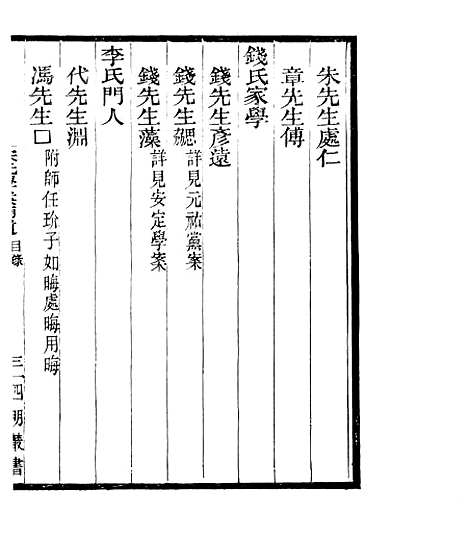 朱先生處仁
章先生傅
錢氏家學
錢先生彥遠
錢先生勰 詳見元祐黨案
錢先生藻 詳見安定學案
李氏門人
代先生淵
馮先生□ 附師任玠子如晦處晦用晦
目錄
三 四明叢書